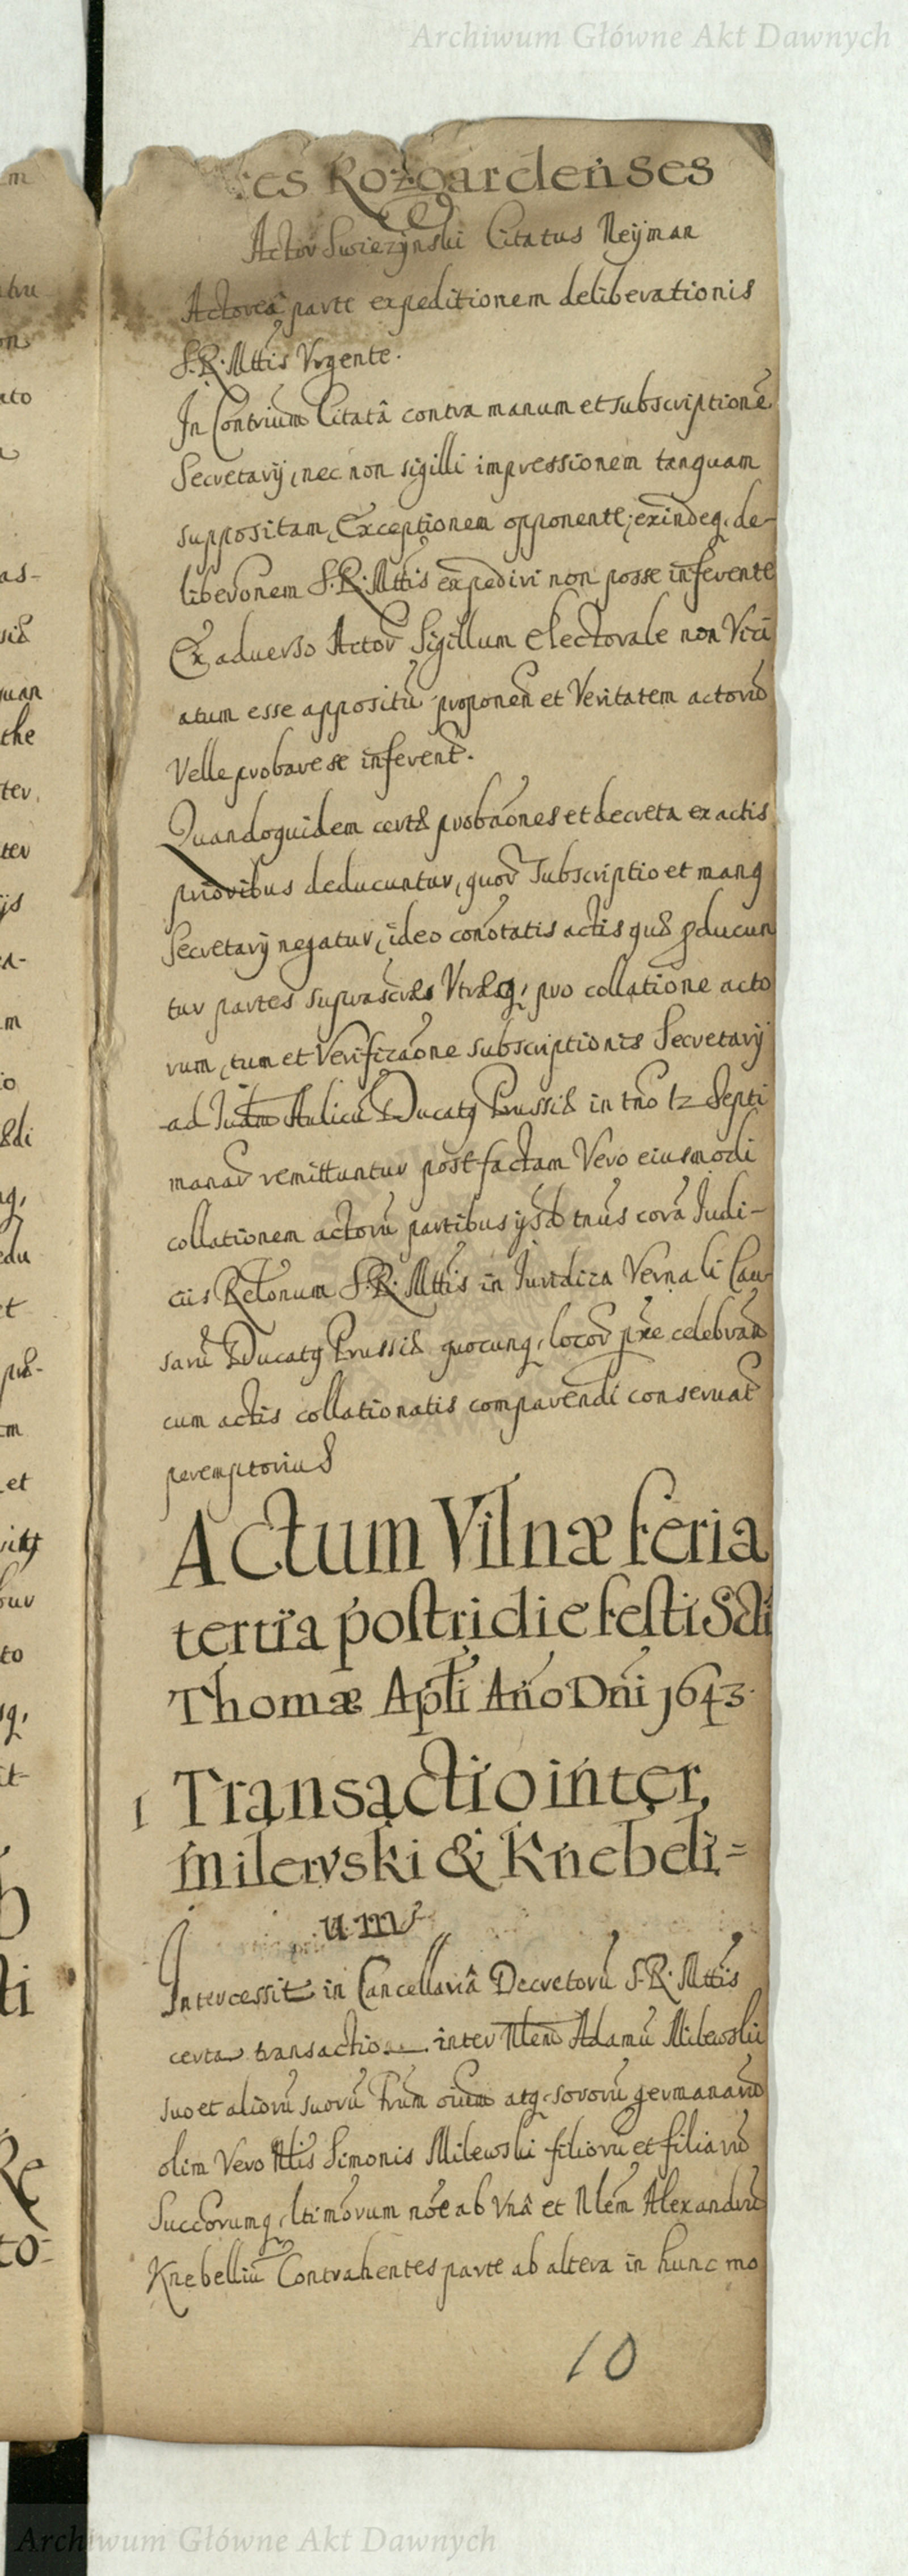 Archiwum Główne Akt Dawnych
es Rozgardenses
Actor Swiezynski Citatus Neijman
Actorea parte expeditionem deliberationis
S. R. Mttis Vrgente.
In Contrium Citatâ contra manum et subscriptionē
Secretarij, nec non sigilli impressionem tanquam
suppositam, Exceptionem opponente; exindeq, de-
liberonem S. R. Mttis expediri non posse inferente
Ex aduerso Actor Sigillum Electorale non Viti
atum esse appositū proponen et Veritatem actorū
Velle probare se inferent.
Quandoquidem certæ probāones et decreta ex actis
prioribus deducuntur, quor Subscriptio et manq
Secretarij negatur, ideo conōtatis actis quæ pducun
tur partes suprascræs Vtræsq, pro collatione acto
rum, tum et Verificāone subscriptionis Secretarij
ad Iudm Aulicū Ducatq Prussiæ in tno 12 Septi
manar remittuntur post factam Vero eiusmodi
collationem actorū partibus ijsd tnus corā Iudi-
ciis Relonum S. R. Mttis in Iuridica Vernali Cau
sarū Ducatq Prussiæ quocunq, locor pre celebran
cum actis collationatis comparendi conseruat
peremptorius
Actum Vilnæ feria
tertia postridie festi Scti
Thomæ Apli Ano Dni 1643.
1 Transactio inter
Milewski & Knebeli=
um
Intercessit in Cancellariâ Decretorū S. R. Mttis
certa transactio inter Nlem Adamū Milewski
suo et aliorū suorū frum oium atq, sororū germanarū
olim Vero Nlis Simonis Milewski filiorū et filiarū
Succorumq, ltimorum nōe ab Vnâ et Nlem Alexandrū
Knebelliū Contrahentes parte ab altera in hunc mo
10
Archiwum Główne Akt Dawnych